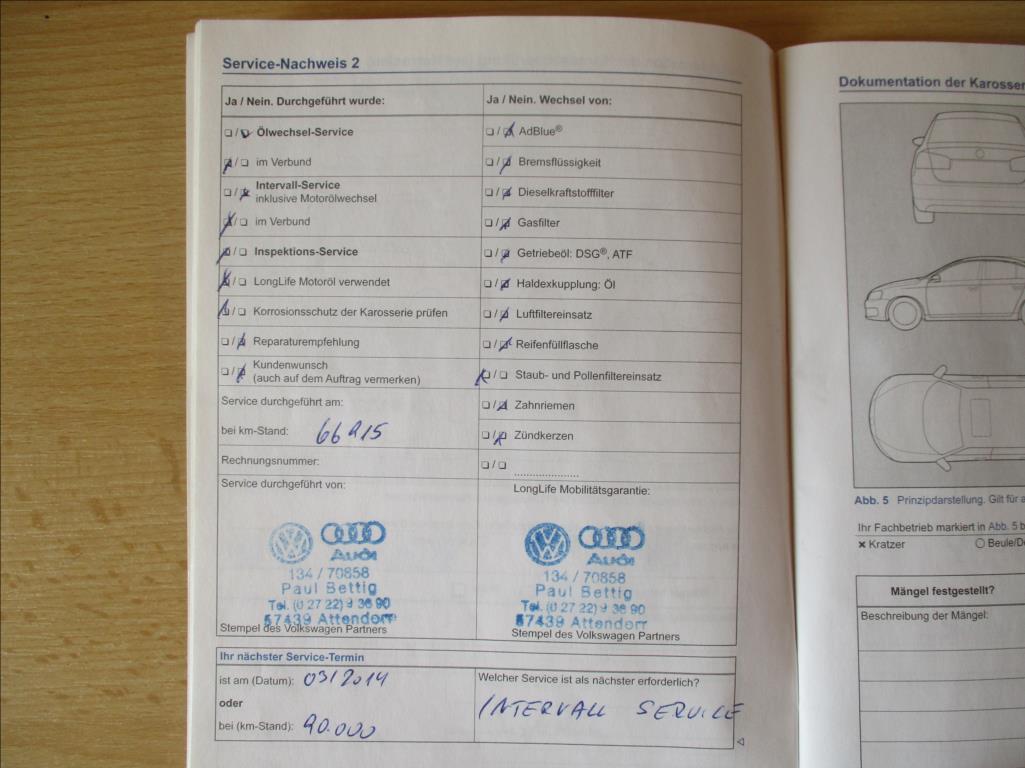 Service-Nachweis 2
Ja / Nein. Durchgeführt wurde:
❏/❏ Ölwechsel-Service
❏/❏ im Verbund
❏/❏ Intervall-Service
inklusive Motorölwechsel
❏/❏ im Verbund
❏/❏ Inspektions-Service
❏/❏ LongLife Motoröl verwendet
❏/❏ Korrosionsschutz der Karosserie prüfen
❏/❏ Reparaturempfehlung
❏/❏ Kundenwunsch
(auch auf dem Auftrag vermerken)
Service durchgeführt am:
bei km-Stand: 66215
Rechnungsnummer:
Service durchgeführt von:
Audi
134 / 70858
Paul Bettig
Tel. (0 27 22) 9 36 90
57439 Attendorn
Stempel des Volkswagen Partners
Ja / Nein. Wechsel von:
❏/❏ AdBlue®
❏/❏ Bremsflüssigkeit
❏/❏ Dieselkraftstofffilter
❏/❏ Gasfilter
❏/❏ Getriebeöl: DSG®, ATF
❏/❏ Haldexkupplung: Öl
❏/❏ Luftfiltereinsatz
❏/❏ Reifenfüllflasche
❏/❏ Staub- und Pollenfiltereinsatz
❏/❏ Zahnriemen
❏/❏ Zündkerzen
❏/❏ ......................
LongLife Mobilitätsgarantie:
Audi
134 / 70858
Paul Bettig
Tel. (0 27 22) 9 36 90
57439 Attendorn
Stempel des Volkswagen Partners
Ihr nächster Service-Termin
ist am (Datum): 03/2014
oder
bei (km-Stand): 90.000
Welcher Service ist als nächster erforderlich?
INTERVALL SERVICE
Dokumentation der Karosser
Abb. 5 Prinzipdarstellung. Gilt für a
Ihr Fachbetrieb markiert in Abb. 5 b
× Kratzer ○ Beule/De
Mängel festgestellt?
Beschreibung der Mängel: